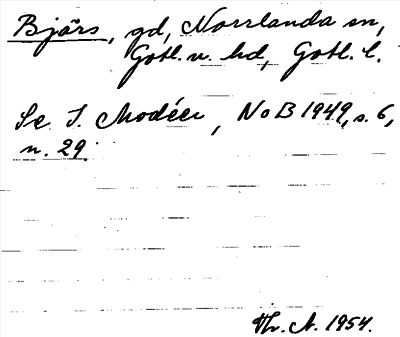 Bjärs, gd, Norrlanda sn,
Gotl. n. hd, Gotl. l.
Se I. Modéer, NoB 1949, s. 6,
n. 29.
Th. A. 1954.